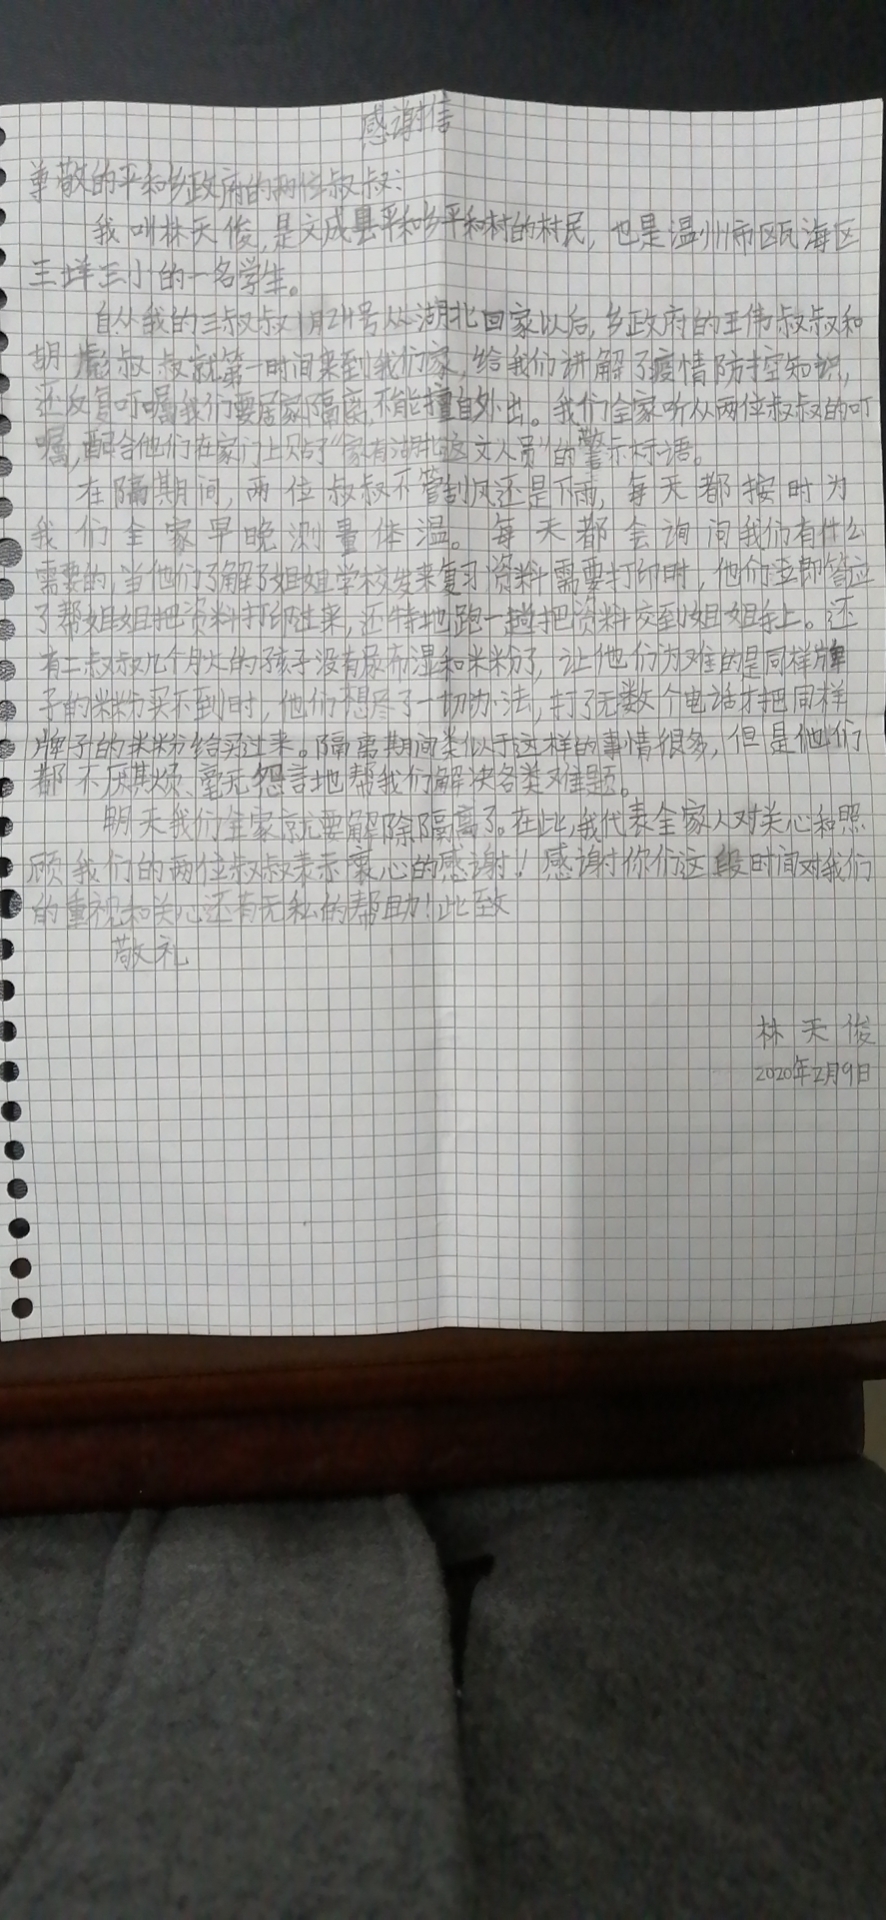 感谢信
尊敬的平和乡政府的两位叔叔:
我叫林天俊,是文成县平和乡平和村的村民,也是温州市瓯海区
三垟三小的一名学生。
自从我的三叔叔1月24号从湖北回家以后,乡政府的王伟叔叔和
胡彪叔叔就第一时间来到我们家,给我们讲解了疫情防控知识,
还反复叮嘱我们要居家隔离,不能擅自外出。我们全家听从两位叔叔的叮
嘱,配合他们在家门上贴了“家有湖北这文人员”的警示标语。
在隔期间,两位叔叔不管刮风还是下雨,每天都按时为
我们全家早晚测量体温。每天都会询问我们有什么
需要的,当他们了解了姐姐学校发来复习资料需要打印时,他们立即答应
了帮姐姐把资料打印过来,还特地跑一趟把资料交到姐姐手上。还
有二叔叔几个月大的孩子没有尿布湿和米粉了,让他们为难的是同样牌
子的米粉买不到时,他们想尽了一切办法,打了无数个电话才把同样
牌子的米粉给买过来。隔离期间类似于这样的事情很多,但是他们
都不厌其烦、毫无怨言地帮我们解决各类难题。
明天我们全家就要解除隔离了。在此,我代表全家人对关心和照
顾我们的两位叔叔表示衷心的感谢!感谢你们这段时间对我们
的重视和关心还有无私的帮助!此致
敬礼
林天俊
2020年2月9日